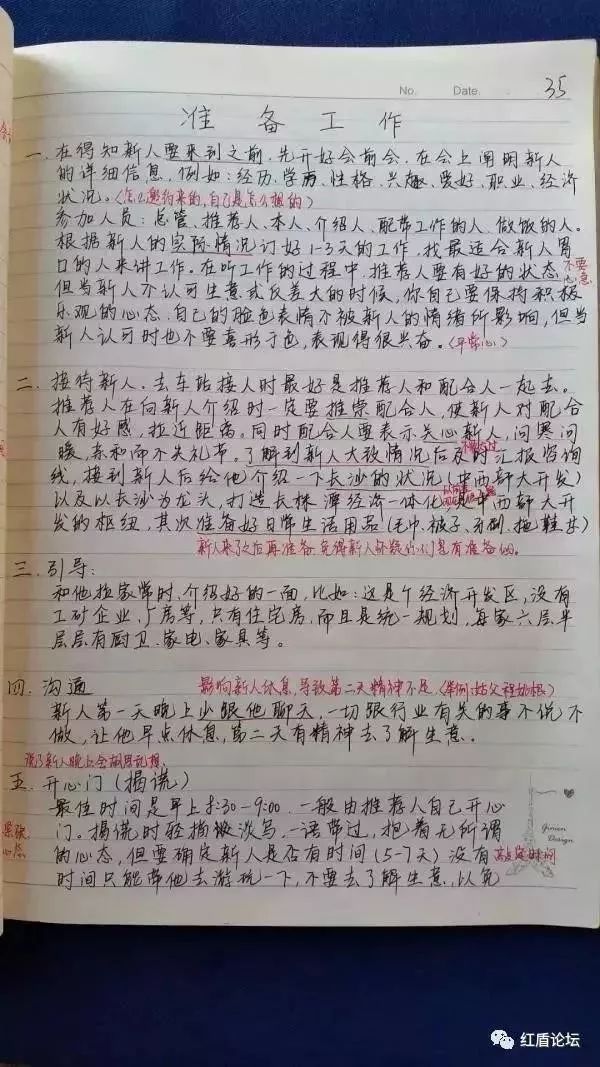 No.    Date.    35
准 备 工 作
一. 在得知新人要来到之前, 先开好会前会, 在会上阐明新人
的详细信息, 例如: 经历、学历、性格、兴趣、爱好、职业、经济
状况。(怎么邀约来的, 自己是怎么想的)
参加人员: 总管、推荐人、本人、介绍人、配带工作的人、做饭的人。
根据新人的实际情况订好1-3天的工作, 找最适合新人胃
口的人来讲工作。在听工作的过程中, 推荐人要有好的状态 不要心急
但当新人不认可生意或反差大的时候, 你自己要保持积极
乐观的心态, 自己的脸色表情不被新人的情绪所影响, 但当
新人认可时也不要喜形于色, 表现得很兴奋。(平常心)
二. 接待新人. 去车站接人时最好是推荐人和配合人一起去。
推荐人在向新人介绍时一定要推崇配合人, 使新人对配合
人有好感, 拉近距离。同时配合人要表示关心新人, 问寒问
暖, 亲和而不失礼节。了解到新人大致情况后及时汇报咨询
线, 接到新人后给他介绍一下长沙的状况 (中西部大开发)
以及以长沙为龙头, 打造长株潭经济一体化 是中西部大开
发的枢纽, 其次准备好日常生活用品 (毛巾、被子、牙刷、拖鞋
新人来了之后再准备, 免得新人怀疑你们是有准备的。
三. 引导:
和他拉家常时, 介绍好的一面, 比如: 这是个经济开发区, 没有
工矿企业、厂房等, 只有住宅房, 而且是统一规划, 每家六层半
层层有厨卫、家电、家具等。
四. 沟通    影响新人休息, 导致第二天精神不足.
新人第一天晚上少跟他聊天, 一切跟行业有关的事不说不
做, 让他早点休息, 第二天有精神去了解生意.
说了新人晚上会胡思乱想.
五. 开心门 (揭谎)
最佳时间是早上8:30-9:00. 一般由推荐人自己开心
门。揭谎时轻描淡写, 一语带过, 抱着无所谓
的心态, 但要确定新人是否有时间 (5-7天) 没有
心态
时间只能带他去游玩一下, 不要去了解生意, 以免
Design
红盾论坛